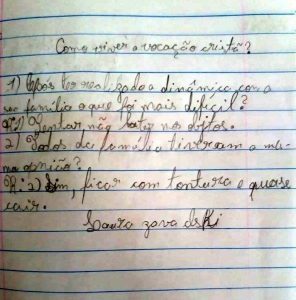 Como viver a vocação cristã?
1) Após ter realizado a dinâmica com a
família o que foi mais dificil?
R:1) Tentar não bater nos objtos.
2) Todos da família tiveram a mes
ma opnião?
R:2) Sim, ficar com tontura e quase
cair.
Laura zava dski